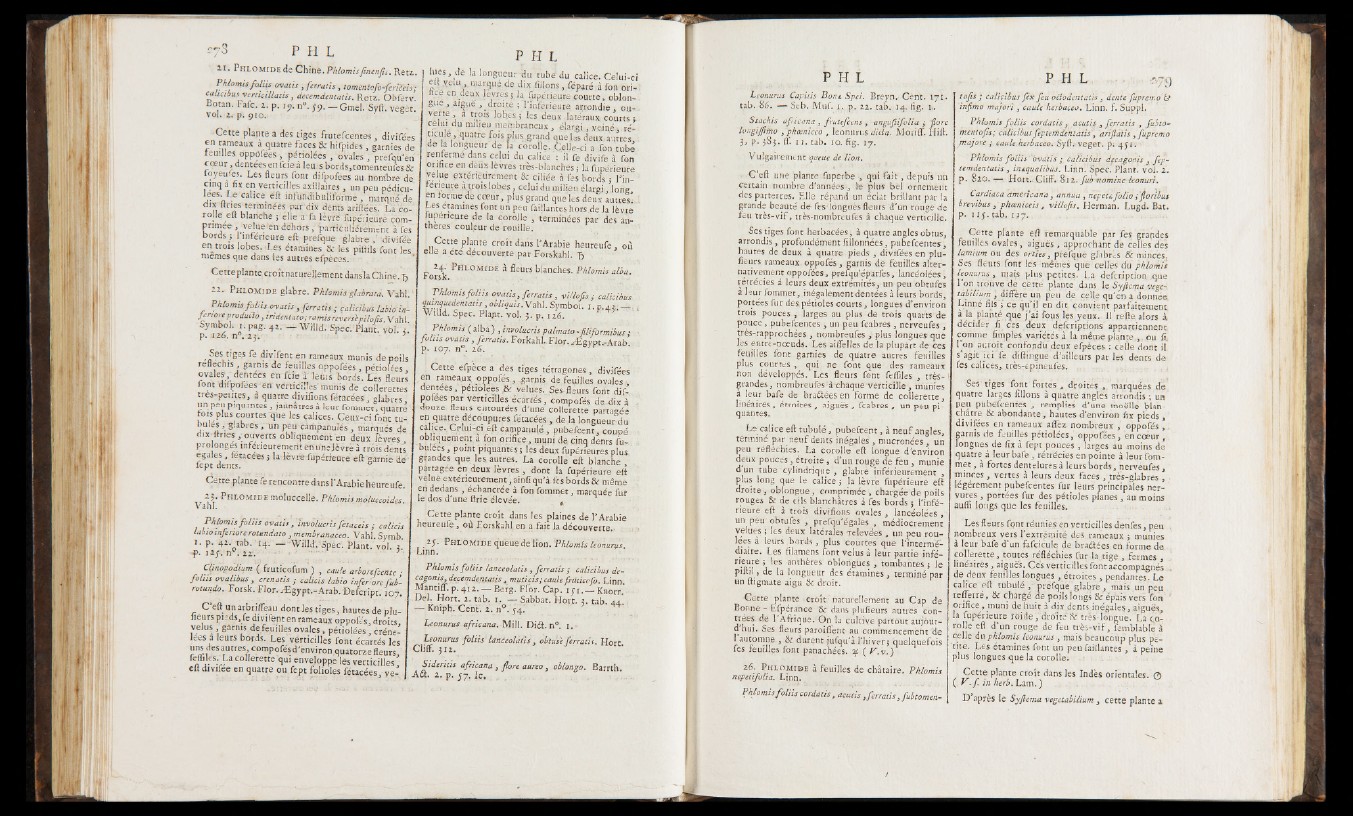 278 P H L
21. PHLOMIDE de Chine. Phlomis sinensis. Retz.
Phlomis foliis ovatis, serratis, tomentoso-sericeis;
calicibus verticillatis, decemdentatis. Retz. Observ.
Botan. Fasc. 2. p. 19. n°. 59. — Gmel. Syst. veget.
vol. 2. p. 910.
Cette plante a des tiges frutescentes, divisées
en rameaux à quatre faces & hispides, garnies de
feuilles opposées, pétiolées, ovales, presqu'en
cœur, dentées en scie à leurs bords, tomenteuses &
soyeuses. Les fleurs sont disposées au nombre de
cinq à six en verticilles axillaires, un peu pédicu-
lées. Le calice est infundibuliforme, marqué de
dix stries terminées par dix dents aristées. La co-
rolle est blanche; elle a sa lèvre supérieure com-
primée, velue en dehors, particuliérement à ses
bords; l'inférieure est presque glabre, divisée
en trois lobes. Les étamines & les pistils sont les
mêmes que dans les autres espèces.
Cette plante croît naturellement dans la Chine. ♄
22. PHLOMIDE glabre. Phlomis glabrata. Vahl.
Phlomis foliis ovatis, serratis; calicibus labio in-
feriore producto, tridentato; ramis reversè pilosis. Vahl.
Symbol. 1. pag. 42. — Willd. Spec. Plant. vol. 3.
p. 126. n°. 23.
Ses tiges se divisent en rameaux munis de poils
réfléchis, garnis de feuilles opposées, pétiolées,
ovales, dentées en scie à leurs bords. Les fleurs
sont disposées en verticilles munis de collerettes
très-petites, à quatre divisions sétacées, glabres,
un peu piquantes, jaunâtres à leur sommet, quatre
fois plus courtes que les calices. Ceux-ci sont tu-
bulés, glabres, un peu campanulés, marqués de
dix stries, ouverts obliquement en deux lèvres,
prolongés inférieurement en une lèvre à trois dents
égales, sétacées; la lèvre supérieure est garnie de
sept dents.
Cette plante se rencontre dans l'Arabie heureuse.
23. PHLOMIDE moluccelle. Phlomis moluccoides.
Vahl.
Phlomis foliis ovatis, involucris setaceis; calicis
labio inferiore rotundato, membranaceo. Vahl. Symb.
1. p. 42. tab. 14. — Willd. Spec. Plant. vol. 3.
p. 125. n°. 22.
Clinopodium (fruticosum), caule arborescente;
foliis ovalibus, crenatis; calicis labio inferiore sub-
rotundo. Forsk. Flor. Ægypt.-Arab. Descript. 107.
C'est un arbrisseau dont les tiges, hautes de plu-
sieurs pieds, se divisent en rameaux opposés, droits,
velus, garnis de feuilles ovales, pétiolées, créne-
lées à leurs bords. Les verticilles sont écartés les
uns des autres, composés d'environ quatorze fleurs,
sessiles. La collerette qui enveloppe les verticilles,
est divisée en quatre ou sept folioles sétacées, ve-
P H L
lues, de la longueur du tube du calice. Celui-ci
est velu, marqué de dix sillons, séparé à son ori-
fice en deux lèvres; la supérieure courte, oblon-
gue, aiguë, droite; l'inférieure arrondie, ou-
verte, à trois lobes; les deux latéraux courts;
celui du milieu membraneux, élargi, veiné, ré-
ticulé, quatre fois plus grand que les deux autres,
de la longueur de la corolle. Celle-ci a son tube
renfermé dans celui du calice: il se divise à son
orifice en deux lèvres très-blanches; la supérieure
velue extérieurement & ciliée à ses bords; l'in-
férieure à trois lobes, celui du milieu élargi, long,
en forme de cœur, plus grand que les deux autres.
Les étamines sont un peu saillantes hors de la lèvre
supérieure de la corolle, terminées par des an-
thères couleur de rouille.
Cette plante croît dans l'Arabie heureuse, où
elle a été découverte par Forskahl. ♄
24. PHLOMIDE à fleurs blanches. Phlomis alba.
Forsk.
Phlomis foliis ovatis, serratis, villosis; calicibus
quinquedentatis, obliquis. Vahl. Symbol. 1. p. 43. —
Willd. Spec. Plant. vol. 3. p. 126.
Phlomis (alba), involucris palmato-filiformibus;
foliis ovatis, serratis. Forkahl. Flor. Ægypt.-Arab.
p. 107. n°. 26.
Cette espèce a des tiges tétragones, divisées
en rameaux opposés, garnis de feuilles ovales,
dentées, pétiolées & velues. Ses fleurs sont dis-
posées par verticilles écartés, composés de dix à
douze fleurs entourées d'une collerette partagée
en quatre découpures sétacées, de la longueur du
calice. Celui-ci est campanulé, pubescent, coupé
obliquement à son orifice, muni de cinq dents su-
bulées, point piquantes; les deux supérieures plus
grandes que les autres. La corolle est blanche,
partagée en deux lèvres, dont la supérieure est
velue extérieurement, ainsi qu'à ses bords & même
en dedans, échancrée à son sommet, marquée sur
le dos d'une strie élevée.
Cette plante croît dans les plaines de l'Arabie
heureuse, où Forskahl en a fait la découverte.
25. PHLOMIDE queue de lion. Phlomis leonurus.
Linn.
Phlomis foliis lanceolatis, serratis; calicibus de-
cagonis, decemdentatis, muticis; caule fruticoso. Linn.
Mantiss. p. 412. — Berg. Flor. Cap. 151. — Knorr.
Del. Hort. 2. tab. 1. — Sabbat. Hort. 3. tab. 44.
— Kniph. Cent. 2. n°. 54.
Leonurus africana. Mill. Dict. n°. 1.
Leonurus foliis lanceolatis, obtusè serratis. Hort.
Cliff. 312.
Sideritis africana, flore aureo, oblongo. Barrth.
Act. 2. p. 57. ic.
P H L
Leonurus Capitis Bonæ Spei. Breyn. Cent. 171.
tab. 86. — Seb. Mus. 1. p. 22. tab. 14. fig. 1.
Stachis africana, frutescens, angustifolia; flore
longissimo, phœniceo, leonurus dicta. Moriss. Hist.
3. p. 383. ss. 11. tab. 10. fig. 17.
Vulgairement queue de lion.
C'est une plante superbe, qui fait, depuis un
certain nombre d'années, le plus bel ornement
des parterres. Elle répand un éclat brillant par la
grande beauté de ses longues fleurs d'un rouge de
feu très-vif, très-nombreuses à chaque verticille.
Ses tiges sont herbacées, à quatre angles obtus,
arrondis, profondément sillonnées, pubescentes,
hautes de deux à quatre pieds, divisées en plu-
sieurs rameaux opposés, garnis de feuilles alter-
nativement opposées, presqu'éparses, lancéolées,
rétrécies à leurs deux extrémités, un peu obtuses
à leur sommet, inégalement dentées à leurs bords,
portées sur des pétioles courts, longues d'environ
trois pouces, larges au plus de trois quarts de
pouce, pubescentes, un peu scabres, nerveuses,
très-rapprochées, nombreuses, plus longues que
les entre-nœuds. Les aisselles de la plupart de ces
feuilles sont garnies de quatre autres feuilles
plus courtes, qui ne sont que des rameaux
non développés. Les fleurs sont sessiles, très-
grandes, nombreuses à chaque verticille, munies
à leur base de bractées en forme de collerette,
linéaires, étroites, aiguës, scabres, un peu pi-
quantes.
Le calice est tubulé, pubescent, à neuf angles,
terminé par neuf dents inégales, mucronées, un
peu réfléchies. La corolle est longue d'environ
deux pouces, étroite, d'un rouge de feu, munie
d'un tube cylindrique, glabre inférieurement,
plus long que le calice; la lèvre supérieure est
droite, oblongue, comprimée, chargée de poils
rouges & de cils blanchâtres à ses bords; l'infé-
rieure est à trois divisions ovales, lancéolées,
un peu obtuses, presqu'égales, médiocrement
velues; les deux latérales relevées, un peu rou-
lées à leurs bords, plus courtes que l'intermé-
diaire. Les filamens sont velus à leur partie infé-
rieure; les anthères oblongues, tombantes; le
pistil, de la longueur des étamines, terminé par
un stigmate aigu & droit.
Cette plante croît naturellement au Cap de
Bonne-Espérance & dans plusieurs autres con-
trées de l'Afrique. On la cultive partout aujour-
d'hui. Ses fleurs paroissent au commencement de
l'automne, & durent jusqu'à l'hiver; quelquefois
ses feuilles sont panachées. ♃ (V. v.)
26. PHLOMIDE à feuilles de châtaire. Phlomis
nepetifolia. Linn.
Phlomis foliis cordatis, acutis, serratis, subtomen-
P H L 279
tosis; calicibus sex seu octodentatis, dente supremo &
infimo majori, caule herbaceo. Linn. f. Suppl.
Phlomis foliis cordatis, acutis, serratis, subto-
mentosis; calicibus septemdentatis, aristatis, supremo
majore; caule herbaceo. Syst. veget. p. 451.
Phlomis foliis ovatis; calicibus decagonis, sep-
temdentatis, inæqualibus. Linn. Spec. Plant. vol. 2.
p. 820. — Hort. Cliff. 312. sub nomine leonuri.
Cardiaca americana, annua, nepetæ folio; floribus
brevibus, phœniceis, villosis. Herman. Lugd. Bat.
p. 115. tab. 117.
Cette plante est remarquable par ses grandes
feuilles ovales, aiguës, approchant de celles des
lamium ou des orties, presque glabres & minces.
Ses fleurs sont les mêmes que celles du phlomis
leonurus, mais plus petites. La description que
l'on trouve de cette plante dans le Systema vege-
tabilium, diffère un peu de celle qu'en a donnée
Linné fils; ce qu'il en dit convient parfaitement
à la plante que j'ai sous les yeux. Il reste alors à
décider si ces deux descriptions appartiennent
comme simples variétés à la même plante, ou si
l'on auroit confondu deux espèces: celle dont il
s'agit ici se distingue d'ailleurs par les dents de
ses calices, très-épineuses.
Ses tiges sont fortes, droites, marquées de
quatre larges sillons à quatre angles arrondis; un
peu pubescentes, remplies d'une moëlle blan-
châtre & abondante, hautes d'environ six pieds,
divisées en rameaux assez nombreux, opposés,
garnis de feuilles pétiolées, opposées, en cœur,
longues de six à sept pouces, larges au moins de
quatre à leur base, rétrécies en pointe à leur som-
met, à fortes dentelures à leurs bords, nerveuses,
minces, vertes à leurs deux faces, très-glabres,
légérement pubescentes sur leurs principales ner-
vures, portées sur des pétioles planes, au moins
aussi longs que les feuilles.
Les fleurs sont réunies en verticilles denses, peu
nombreux vers l'extrémité des rameaux; munies
à leur base d'un fascicule de bractées en forme de
collerette, toutes réfléchies sur la tige, fermes,
linéaires, aiguës. Ces verticilles sont accompagnés
de deux feuilles longues, étroites, pendantes. Le
calice est tubulé, presque glabre, mais un peu
resserré, & chargé de poils longs & épais vers son
orifice, muni de huit à dix dents inégales, aiguës,
la supérieure roide, droite & très-longue. La co-
rolle est d'un rouge de feu très-vif, semblable à
celle du phlomis leonurus, mais beaucoup plus pe-
tite. Les étamines sont un peu saillantes, à peine
plus longues que la corolle.
Cette plante croît dans les Indes orientales. ☉
(V. s. in herb. Lam.)
D'après le Systema vegetabilium, cette plante a